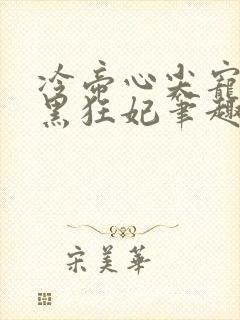 冷帝心尖宠
黑狂妃笔趣
宋美华